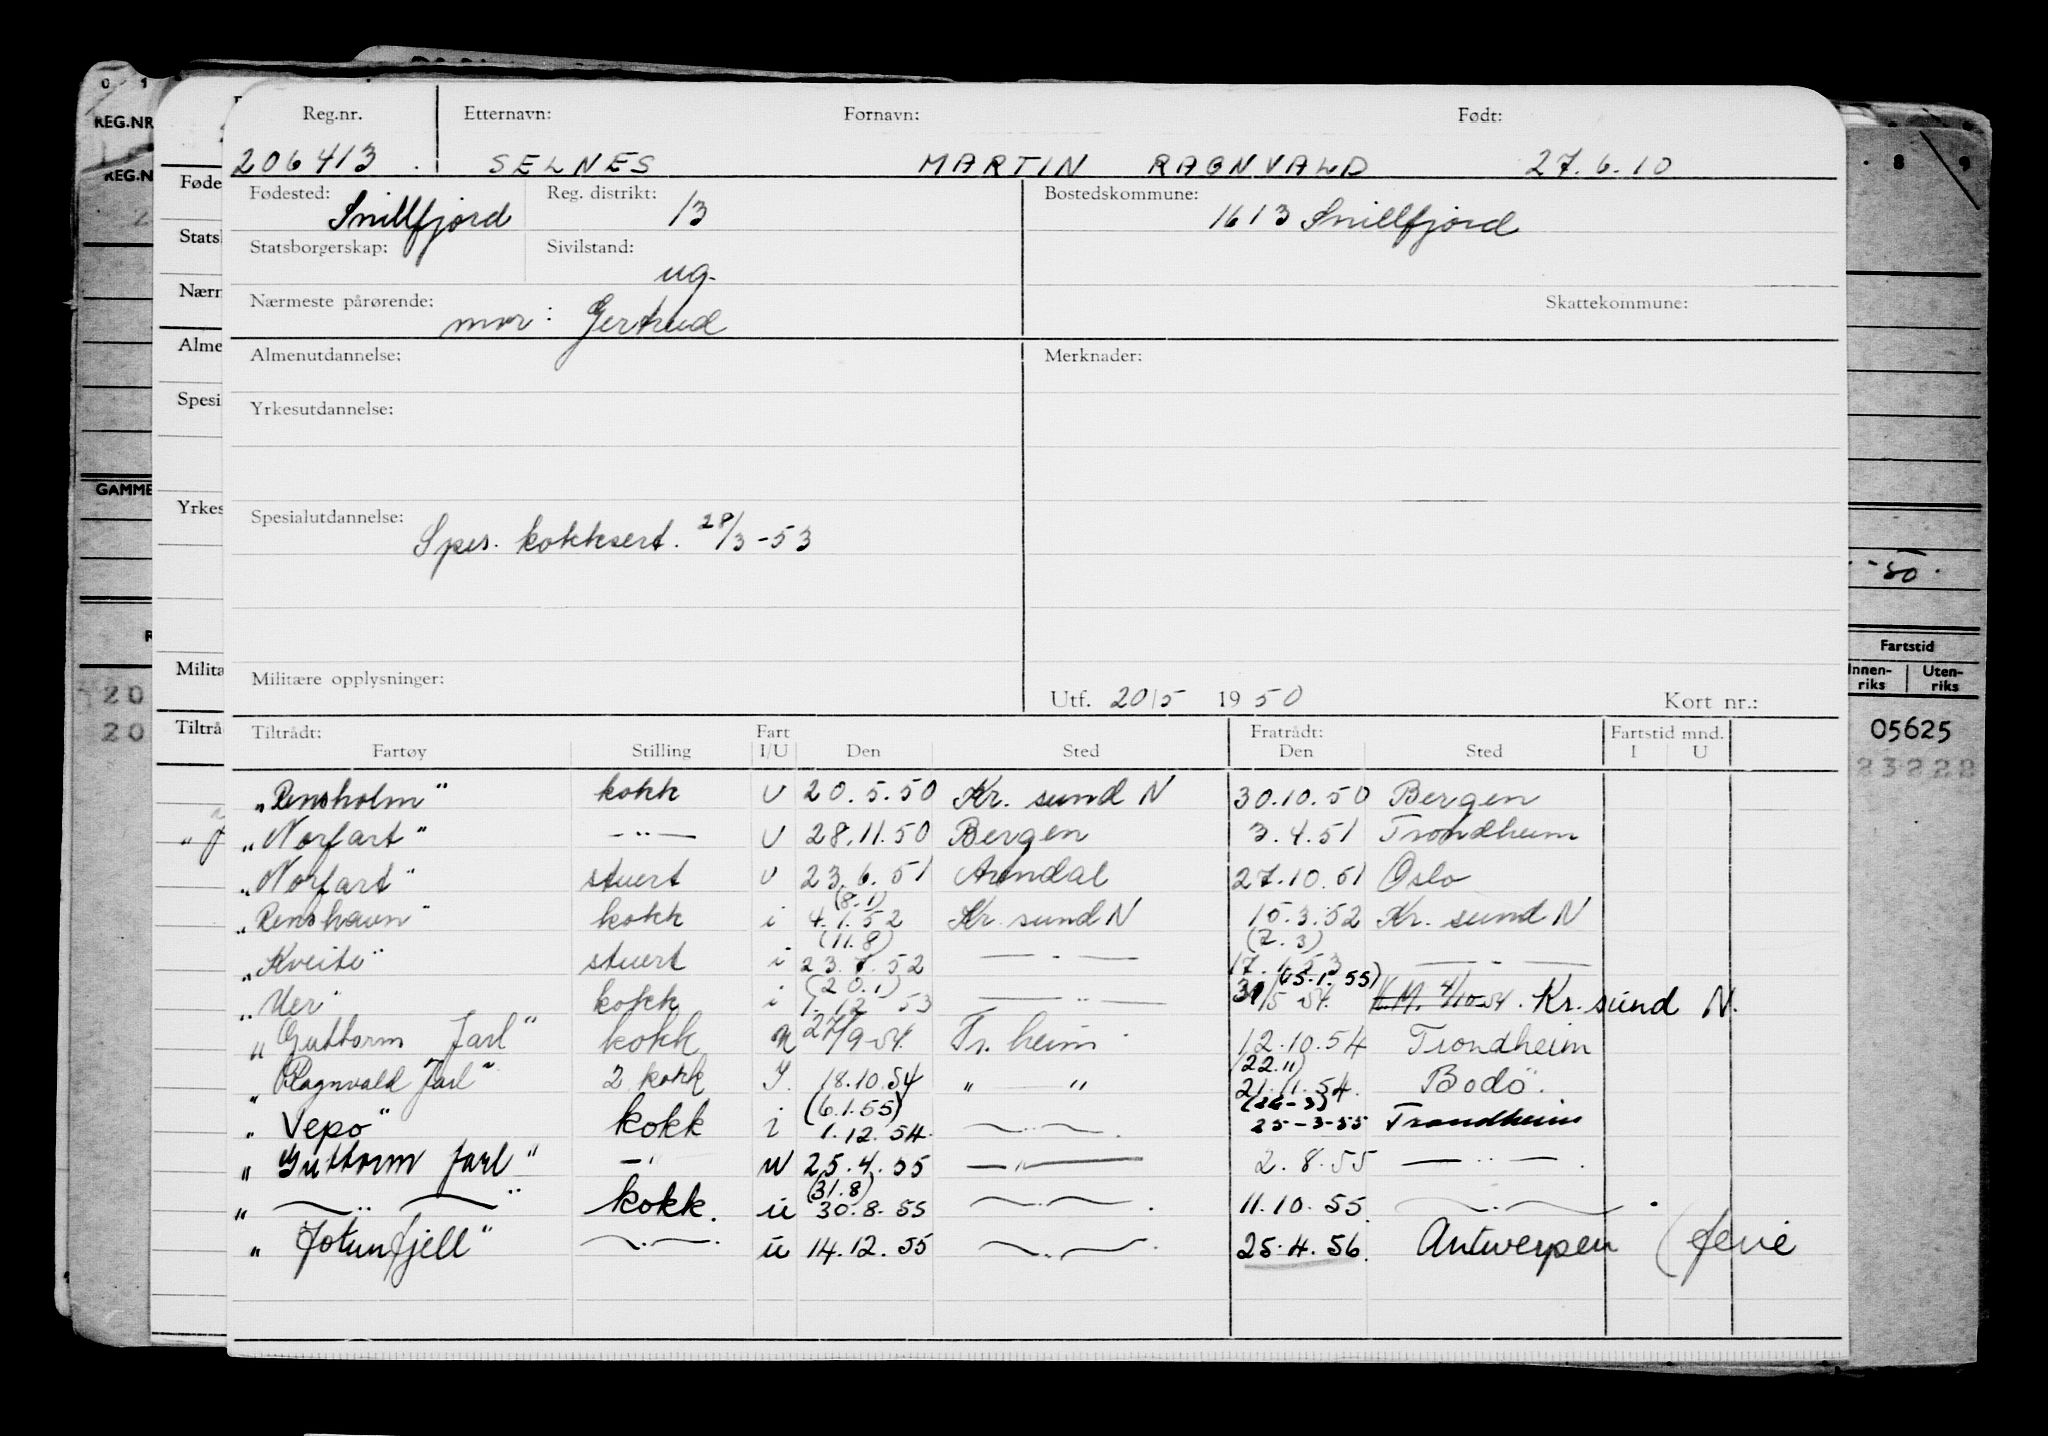 Reg.nr. Etternavn: Fornavn: Født:
206413 SELNES MARTIN RAGNVALD 27.6.10
Fødested: Snillfjord Reg. distrikt: 13 Bostedskommune: 1613 Snillfjord
Statsborgerskap: Sivilstand: ug.
Nærmeste pårørende: mor: Gertrud Skattekommune:
Almenutdannelse: Merknader:
Yrkesutdannelse:
Spesialutdannelse: Spes. kokksert. 28/3-53
Militære opplysninger: Utf. 20/5 1950 Kort nr.:
Tiltrådt: Fart Fratrådt: Fartstid mnd.
Fartøy Stilling I/U Den Sted Den Sted I U
"Rensholm" kokk U 20.5.50 Kr. sund N 30.10.50 Bergen
"Norfart" —"— U 28.11.50 Bergen 3.4.51 Trondheim
"Norfart" stuert U 23.6.51 Arendal 27.10.51 Oslo
"Renshavn" kokk i (8.1) 4.1.52 Kr. sund N 15.3.52 Kr. sund N
"Kveite" stuert i (11.8) 23.7.52 —"— (7.3) 17.1.53 —"—
"Uer" kokk i (20.1) 1.12.53 —"— (5.1.55) 31/5-54. 4/10-54. Kr. sund N.
"Guttorm Jarl" kokk u 27/9-54. Tr. heim 12.10.54 Trondheim
"Ragnvald Jarl" 2 kokk I. 18.10.54 " " (22.11) 21.11.54. Bodö.
"Vepo" kokk i (6.1.55) 1.12.54. —"— (26-3) 25-3-55 Trondheim
"Guttorm Jarl" —"— u 25.4.55 —"— 2.8.55 —"—.
"—"—" kokk. u (31.8) 30.8.55 —"—. 11.10.55. —"—.
"Jotunfjell" —"—. u 14.12.55 —"—. 25.4.56. Antwerpen (ferie
REG.NR
REG.N
GAMME
Føde
Stats
Nærn
Alme
Spesi
Yrkes
Milita
Tiltrå
20
20
8 9
-50.
Fartstid
Innen-riks Uten-riks
05625
23228